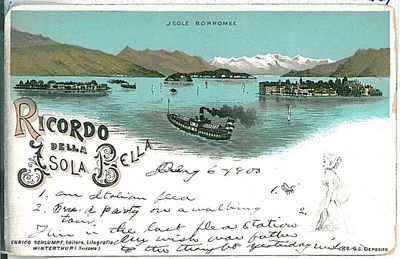 JSOLE BORROMEE
RICORDO
DELLA
ISOLA BELLA
July 6 1900
1. an Italian flea 1.
2. One of party on a walking 2.
tour.
This is the last flea station
Our wish was father
to the thought yesterday
ENRICO SCHLUMPF, Editore, Litografia,
WINTERTHUR (Svizzera)
DEPOSITO